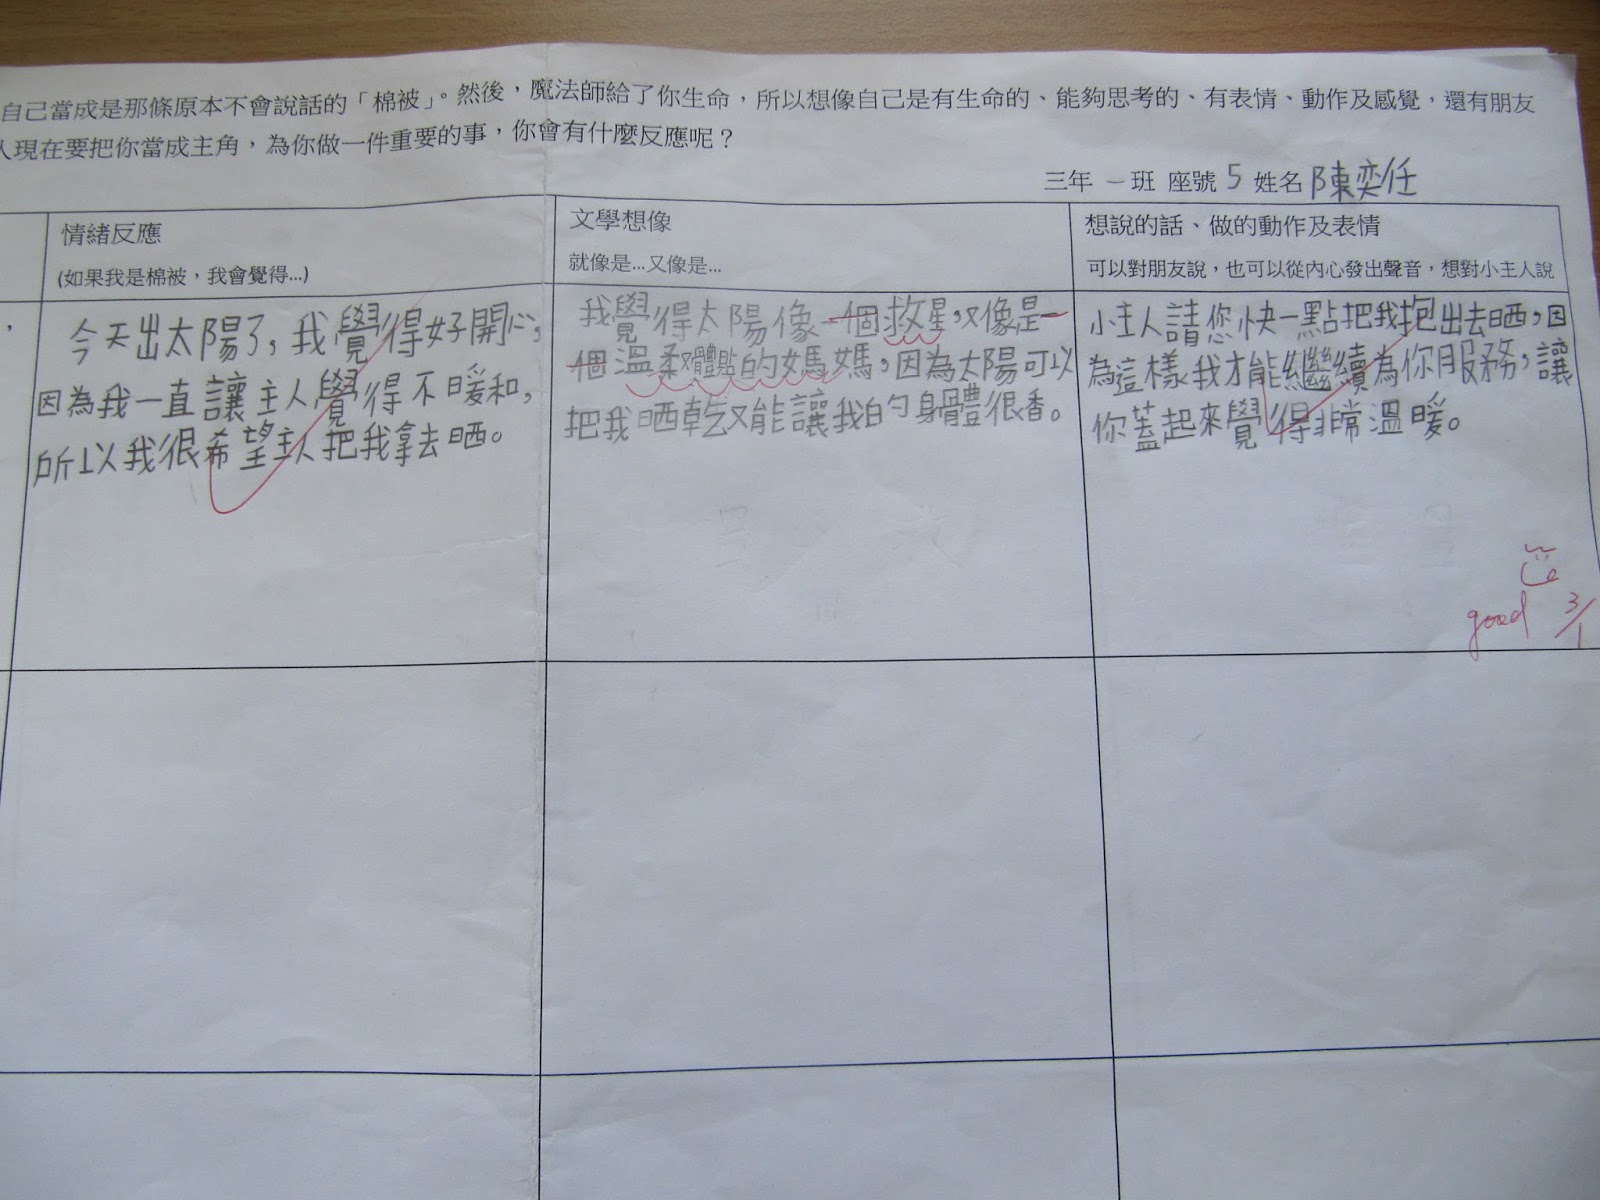 自己當成是那條原本不會說話的「棉被」。然後，魔法師給了你生命，所以想像自己是有生命的、能夠思考的、有表情、動作及感覺，還有朋友
人現在要把你當成主角，為你做一件重要的事，你會有什麼反應呢？
三年 一班 座號 5 姓名 陳奕任
情緒反應
(如果我是棉被，我會覺得...)
，
今天出太陽了，我覺得好開心，
因為我一直讓主人覺得不暖和，
所以我很希望主人把我拿去晒。
文學想像
就像是...又像是...
我覺得太陽像一個救星，又像是一
個溫柔又體貼的媽媽，因為太陽可以
把我晒乾又能讓我的身體很香。
想說的話、做的動作及表情
可以對朋友說，也可以從內心發出聲音，想對小主人說
小主人請您快一點把我抱出去晒，因
為這樣我才能繼續為你服務，讓
你蓋起來覺得非常溫暖。
good 3/1